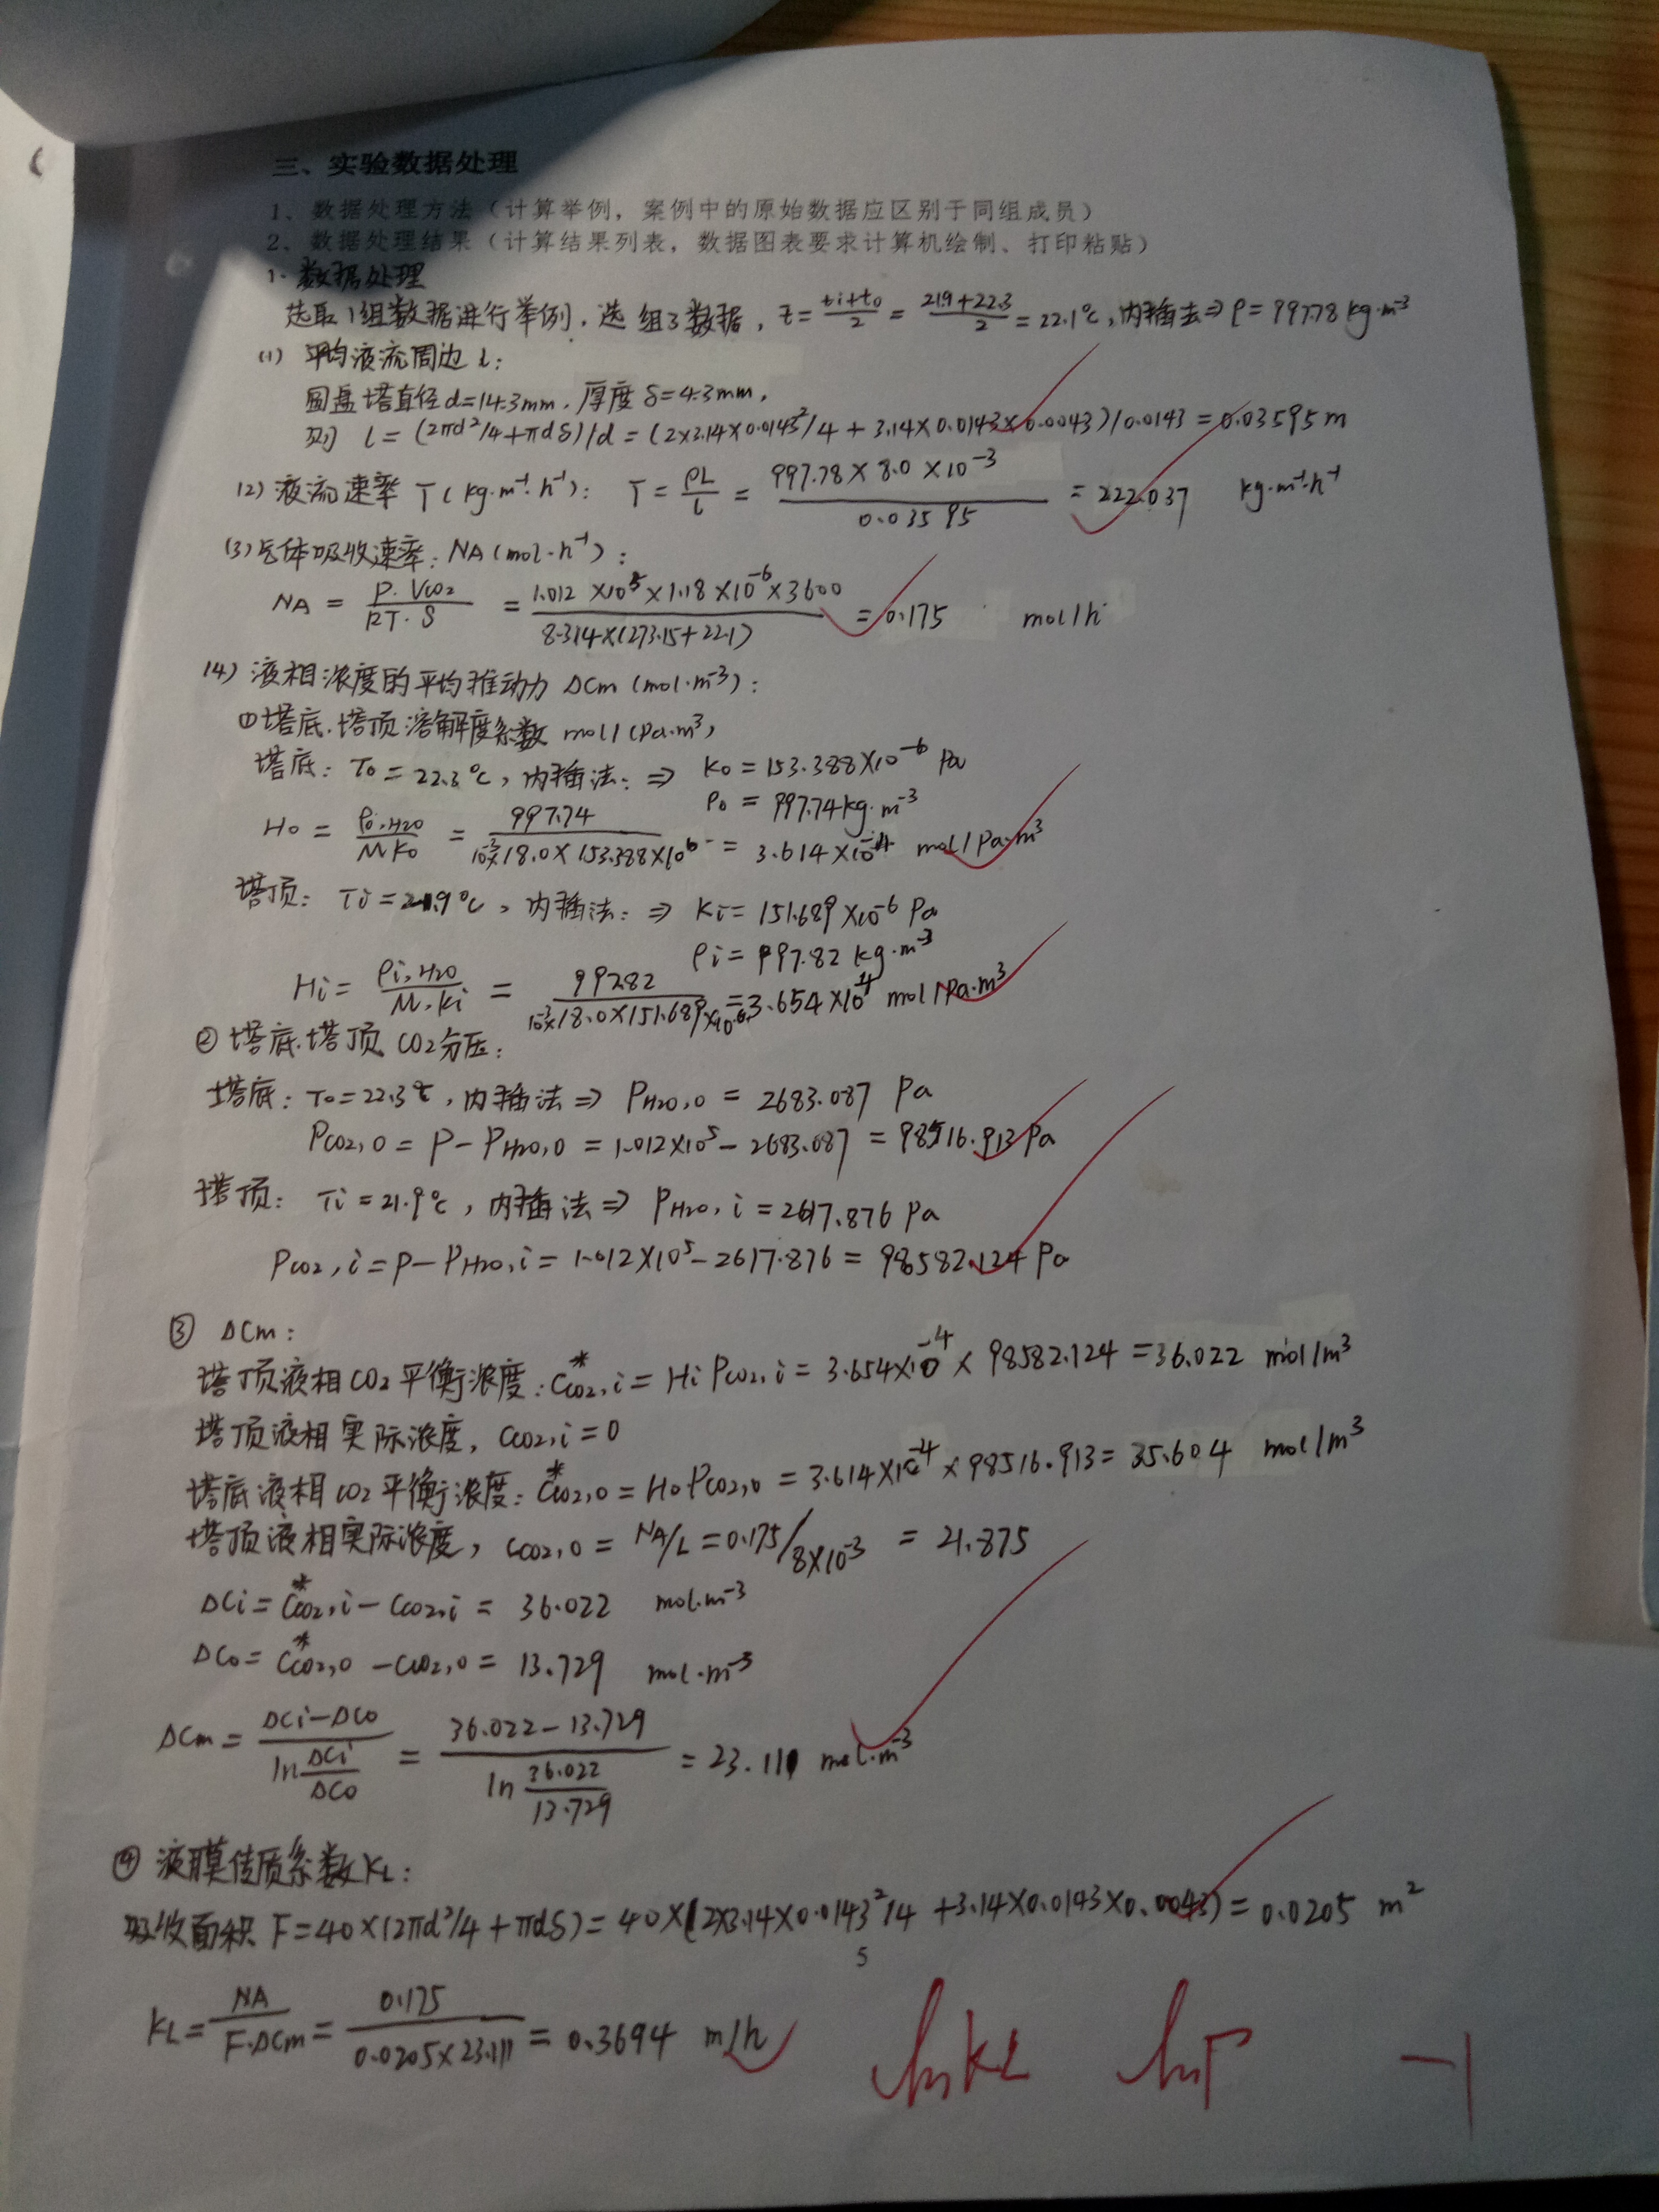 三、实验数据处理
1、数据处理方法（计算举例，案例中的原始数据应区别于同组成员）
2、数据处理结果（计算结果列表，数据图表要求计算机绘制、打印粘贴）
1. 数据处理
选取1组数据进行举例，选 组3数据，t=(ti+to)/2=(21.9+22.3)/2=22.1℃,内插法⇒ρ=997.78kg·m⁻³
(1) 平均液流周边 l：
圆盘塔直径d=14.3mm，厚度δ=4.3mm，
则 l=(2πd²/4+πdδ)/d=(2×3.14×0.0143²/4+3.14×0.0143×0.0043)/0.0143=0.03595m
(2) 液流速率 Γ(kg·m⁻¹·h⁻¹)： Γ=ρL/l=997.78×8.0×10⁻³/0.03595=222.037 kg·m⁻¹·h⁻¹
(3) 气体吸收速率：NA(mol·h⁻¹)：
NA=P·Vco2/RT·S=1.012×10⁵×1.18×10⁻⁶×3600/8.314×(273.15+22.1)=0.175 mol/h
(4) 液相浓度的平均推动力 ΔCm(mol·m⁻³)：
①塔底.塔顶溶解度系数 mol/(Pa·m³)
塔底：To=22.3℃，内插法：⇒ Ko=153.388×10⁻⁶ Pa
ρo=997.74kg·m⁻³
Ho=ρo,H2O/MKo=997.74/10⁻³×18.0×153.388×10⁶=3.614×10⁻⁴ mol/Pa·m³
塔顶：Ti=21.9℃，内插法：⇒ Ki=151.689×10⁻⁶ Pa
ρi=997.82 kg·m⁻³
Hi=ρi,H2O/M·Ki=997.82/10⁻³×18.0×151.689×10⁶=3.654×10⁻⁴ mol/Pa·m³
②塔底.塔顶 CO2分压：
塔底：To=22.3℃，内插法⇒ PH2O,o=2683.087 Pa
PCO2,o=P-PH2O,o=1.012×10⁵-2683.087=98516.913 Pa
塔顶：Ti=21.9℃，内插法⇒ PH2O,i=2617.876 Pa
PCO2,i=P-PH2O,i=1.012×10⁵-2617.876=98582.124 Pa
③ ΔCm：
塔顶液相CO2平衡浓度：C*CO2,i=HiPCO2,i=3.654×10⁻⁴×98582.124=36.022 mol/m³
塔顶液相实际浓度，CCO2,i=0
塔底液相CO2平衡浓度：C*CO2,o=HoPCO2,o=3.614×10⁻⁴×98516.913=35.604 mol/m³
塔顶液相实际浓度，CCO2,o=NA/L=0.175/8×10⁻³=21.875
ΔCi=C*CO2,i-CCO2,i=36.022 mol·m⁻³
ΔCo=C*CO2,o-CCO2,o=13.729 mol·m⁻³
ΔCm=(ΔCi-ΔCo)/ln(ΔCi/ΔCo)=(36.022-13.729)/ln(36.022/13.729)=23.111 mol·m⁻³
④ 液膜传质系数KL：
吸收面积 F=40×(2πd²/4+πdδ)=40×(2×3.14×0.0143²/4+3.14×0.0143×0.0043)=0.0205 m²
5
KL=NA/F·ΔCm=0.175/0.0205×23.111=0.3694 m/h
lnKL lnΓ -1